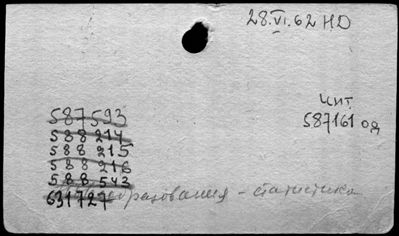 28.VI.62 НО
Чит.
587161 од
587593
588214
588215
588216
588543
631727
образования - статистика